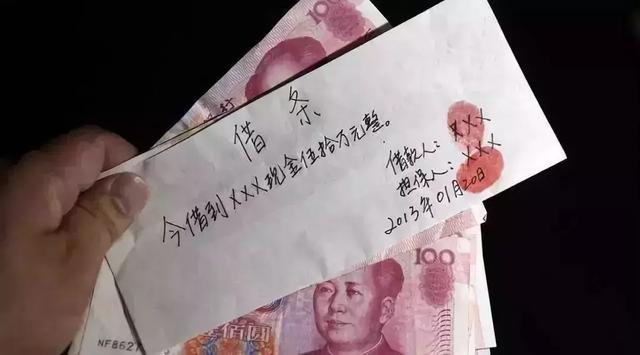 借条
今借到XXX现金伍拾万元整。
借款人：XXX
担保人：XXX
2013年01月20日
100
100
佰圆